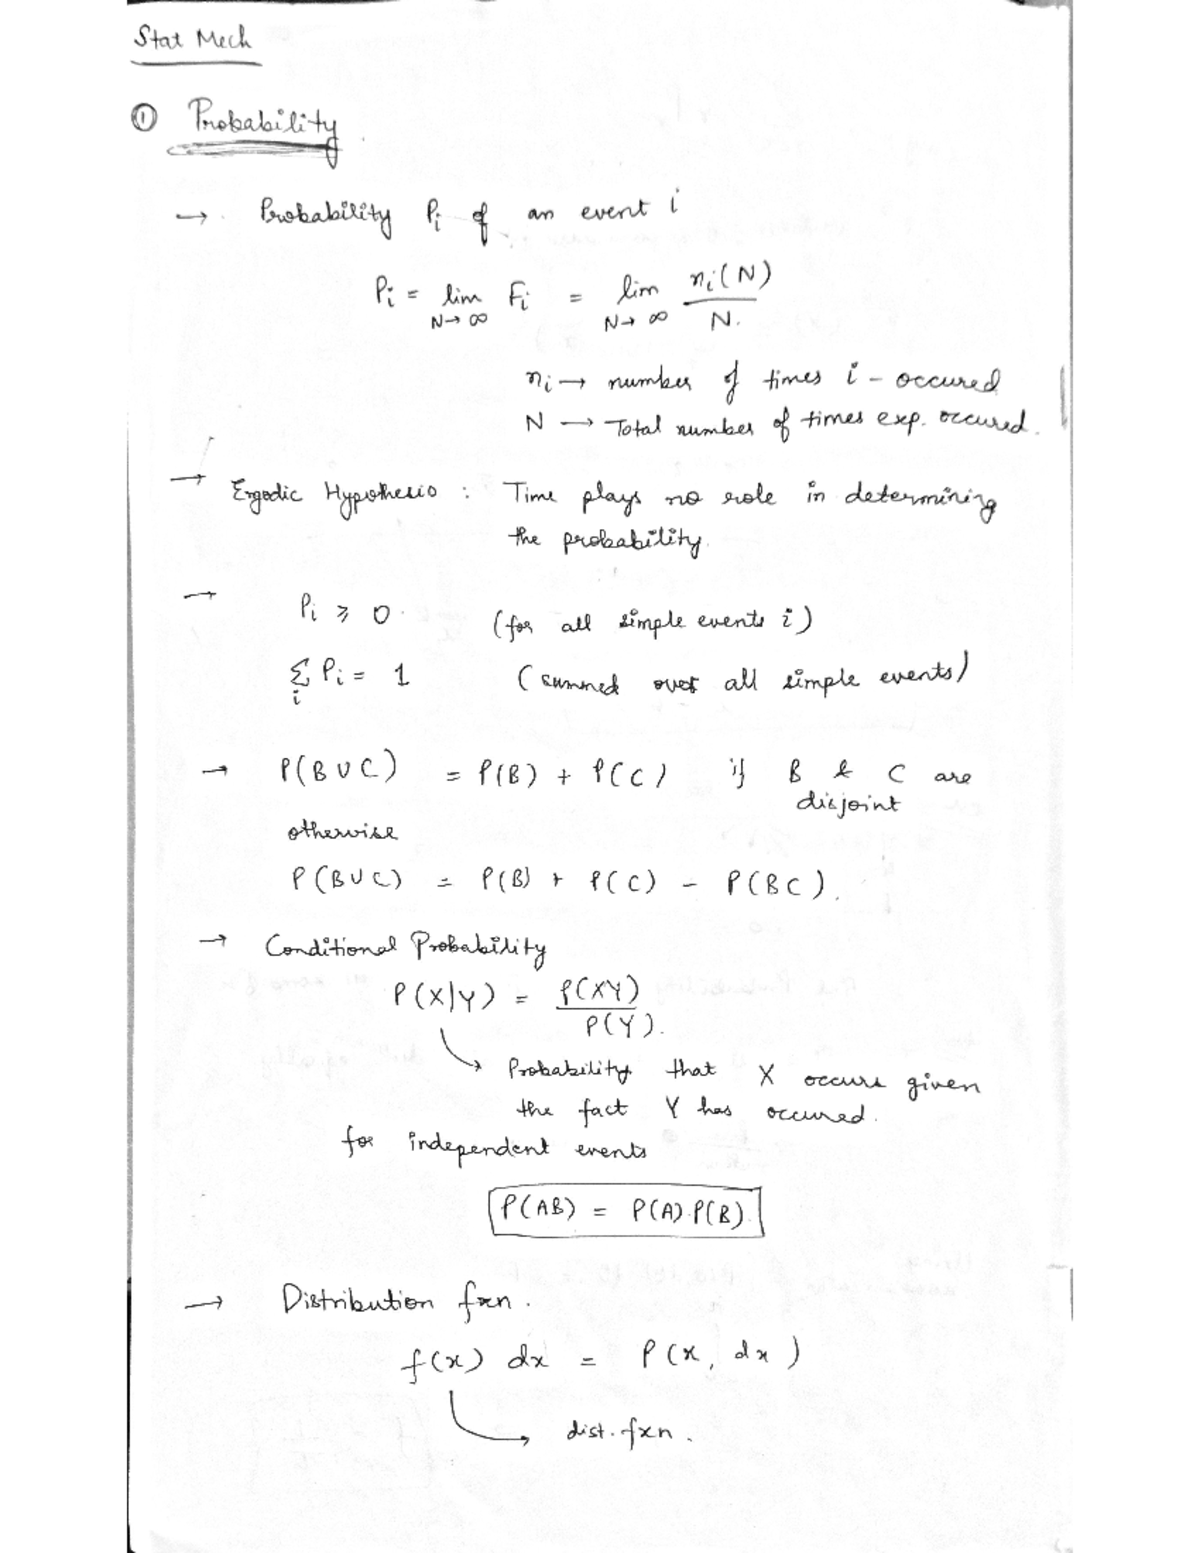 Stat Mech
① Probability
→ Probability Pi of an event i
Pi = lim N→∞ Fi = lim N→∞ ni(N) / N.
ni → number of times i - occured
N → Total number of times exp. occured.
→ Ergodic Hypothesis : Time plays no role in determining
the probability.
→ Pi ≥ 0. (for all simple events i)
Σi Pi = 1 (summed over all simple events)
→ P(B∪C) = P(B) + P(C) if B & C are
disjoint
otherwise
P(B∪C) = P(B) + P(C) - P(BC).
→ Conditional Probability
P(X|Y) = P(XY) / P(Y).
→ Probability that X occurs given
the fact Y has occured.
for independent events
P(AB) = P(A).P(B).
→ Distribution fxn.
f(x) dx = P(x, dx)
→ dist. fxn.